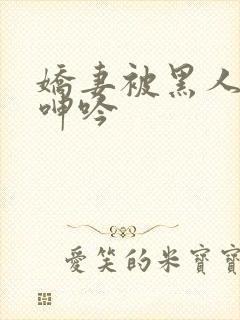 嬌妻被黑人
呻吟
愛笑的米寶寶